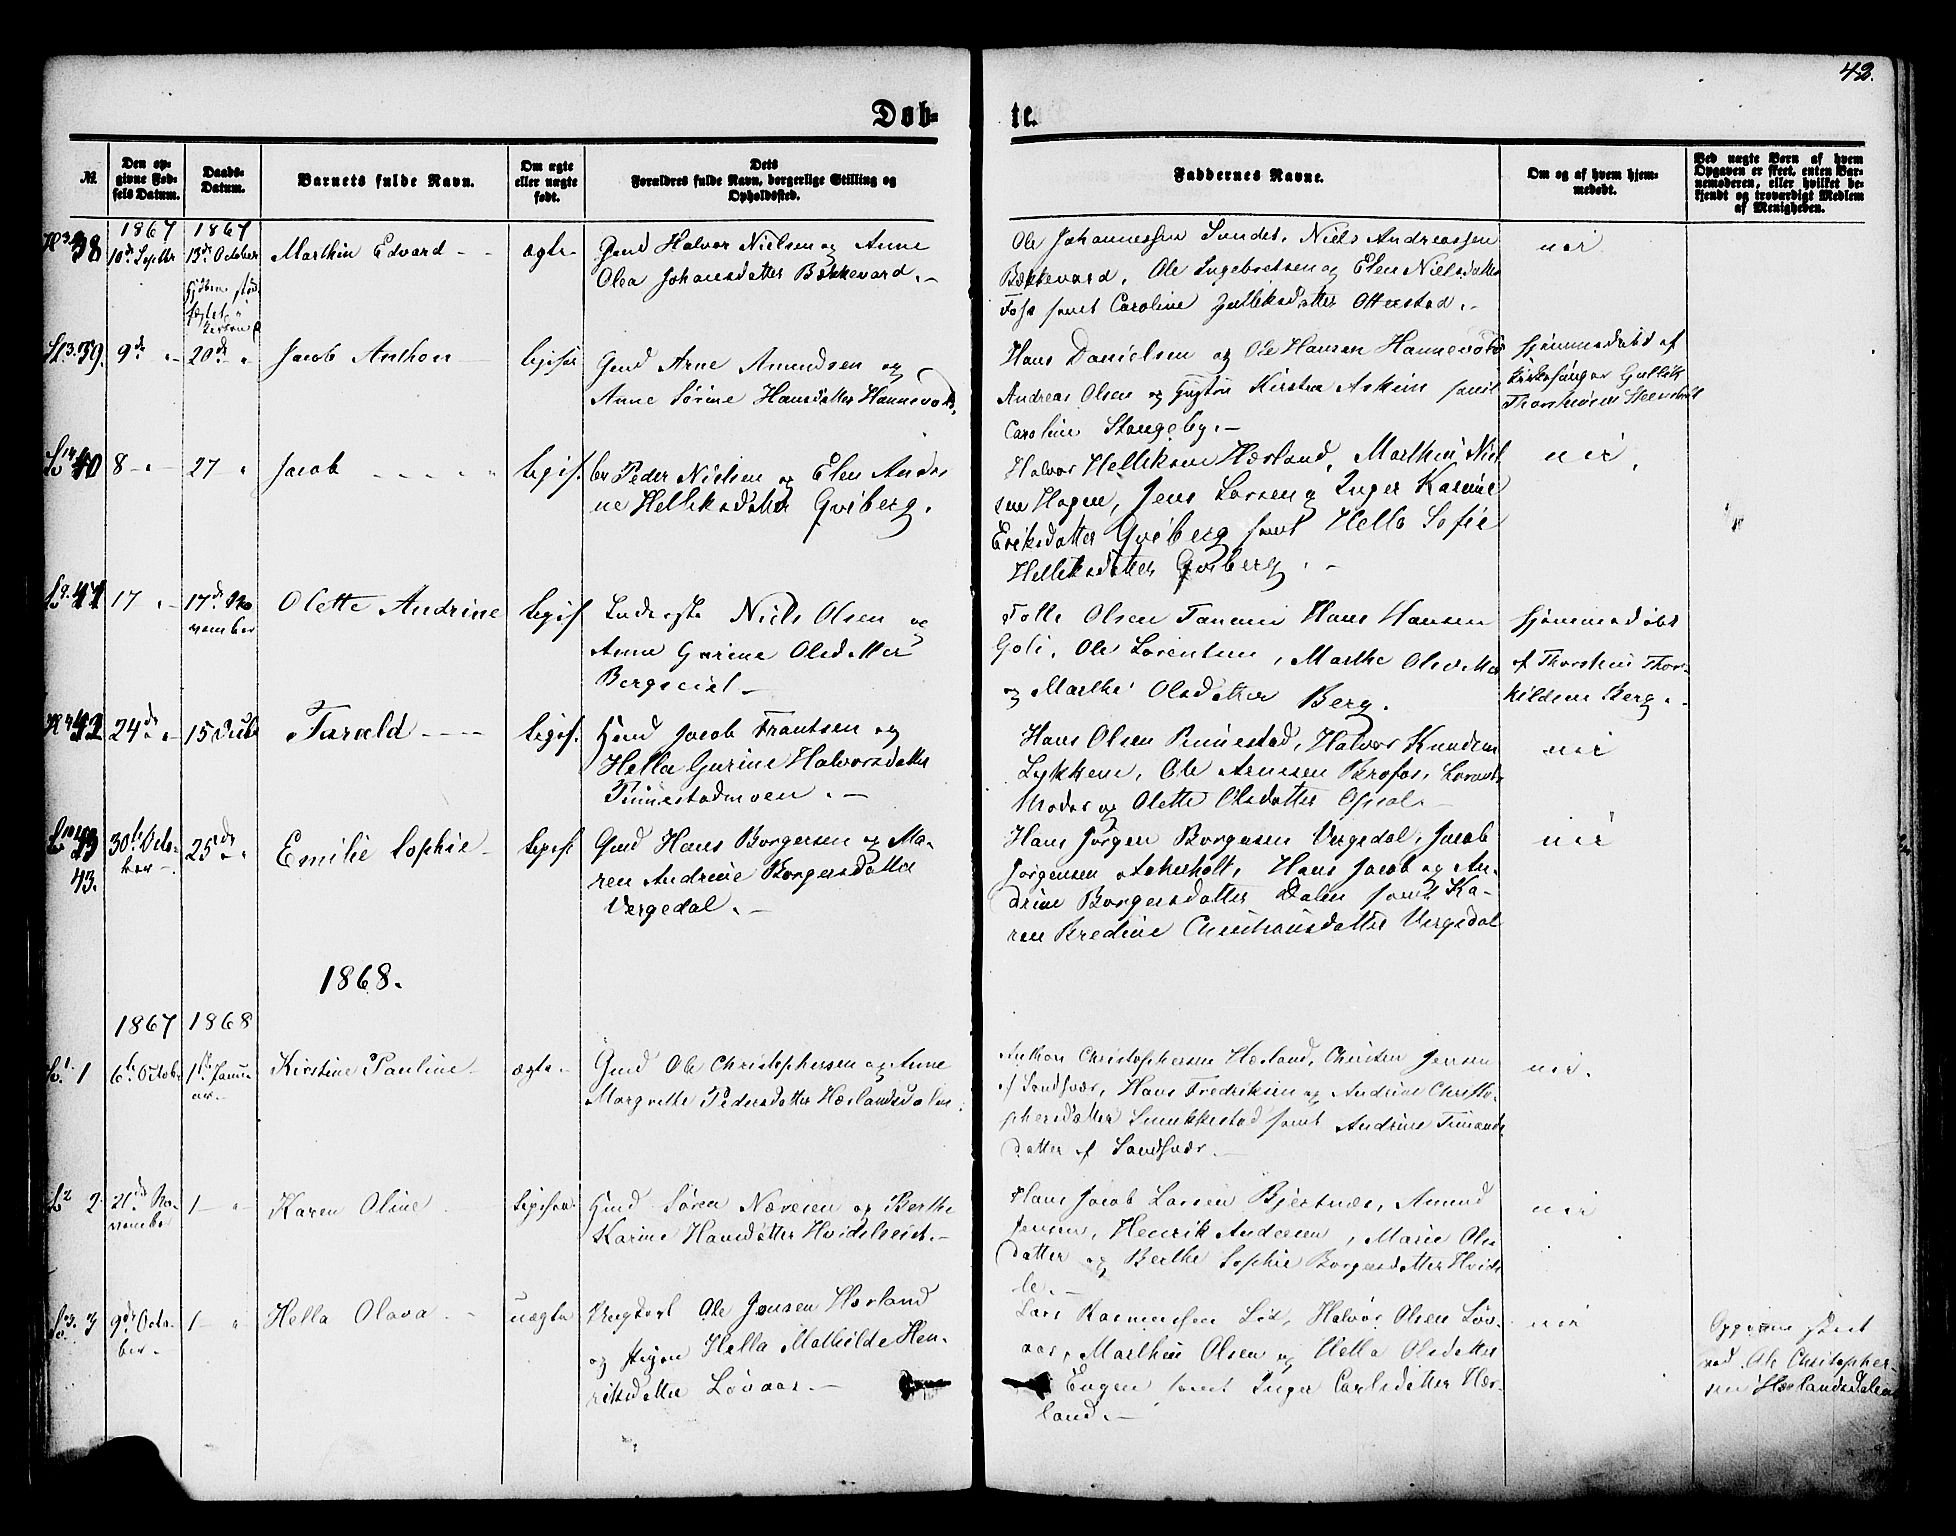 42.
Døb-
te.
№
Den op-
givne Fød-
sels Datum.
Daabs-
Datum.
Barnets fulde Navn.
Om ægte
eller uægte
født.
Dets
Forældres fulde Navn, borgerlige Stilling og
Opholdssted.
Faddernes Navne.
Om og af hvem hjem-
medøbt.
Ved uægte Børn af hvem
Opgaven er skeet, enten Bar-
nemoderen, eller hvilket be-
kjendt og troværdigt Medlem
af Menigheden.
1867 1867
38 10de Septbr 13de October Marthin Edvard - - ægte - Gmd Halvor Nielsen og Anne
Olea Johansdatter Bækkevard. -
Ole Johannessen Sundet, Niels Andreassen
Bækkevard, Ole Ingebretsen og Elen Nielsdatter
Foss samt Caroline Gulliksdatter Otterstad. -
nei
39. 9de " - 20de - " Jacob Anthon - legiso Gmd Arne Amundsen og
Anne Sørine Hansdatter Hannevold.
Hans Danielsen og Ole Hansen Hannevold
Andreas Olsen og Kirstin Askim samt
Caroline Stangeby. -
hjemmedøbt af
Kirkesanger Gullik
40 8 - " - 27 " Jacob - - - - " legis. Peder Nielsen og Elen Andri
ne Helliksdatter Gviberg.
Halvor Helliksen Hærland, Marthin Niel
sen Hagen, Jens Larsen og Inger Karine
Eriksdatter Gviberg samt Hella Sofie
Helliksdatter Gviberg. -
nei
41 17 " - 17de No
vember Olette Andrine legis. Inderste Niels Olsen og
Anne Gurine Olsdatter
Bergseiet -
Olsen Hans Hansen
Goli, Ole Lorentsen, Marthe
og Marthe Olsdatter Berg.
hjemmedøbt
af Thorstein Thor-
kildsen Berg. -
42 24de " - 15 Tarald - - - - legis. Gmd Jacob Frantsen og
Hella Gurine Halvorsdatter
Rimestadmoen. -
Hans Olsen Rimestad, Halvor Knudsen
Lykken, Ole Arnesen Brofos,
Moder og Olette Olsdatter Opsal. -
nei
43 30te Octo-
ber - 25de - " Emilie Sophie - legis Gmd Hans Borgersen og Ma-
ren Andrine Borgersdatter
Vergedal. -
43.
Hans Jørgen Borgersen Vergedal, Jacob
Jørgensen Askerholt, Hans Jacob og An-
drine Borgersdatter Dalen samt Ka-
ren Bredine Christiansdatter Vergedal
nei
1868.
1867 1868
1 6te Octob. 1ste Janu-
ar. - Kirstine Pauline - ægte - Gmd Ole Christophersen og Anne
Margrethe Pedersdatter Hærlandsdalen.
Anthon Christophersen Hærland, Christen Jensen
af Sandsvær, Hans Fredriksen og Andrine Christo-
phersdatter Smukkestad samt Andrine Simons
datter af Sandsvær. -
nei.
2 21de No-
vember 1 - " - Karen Oline legison Gmd Søren Næveien og Berthe
Karine Hansdatter Hvidelseiet. -
Hans Jacob Larsen Bjertnæs, Amund
Jensen, Henrik Andersen, Marie Ols
datter og Berthe Sophie Borgersdatter Hvids
le. -
nei
3 9de Octo-
ber - 1 - " Hella Olava - - uægte Ungkarl Ole Jensen Hærland
og Pigen Hella Mathilde Hen-
riksdatter Løvaas. -
Lars Rasmussen Lid, Halvor Olsen Løv-
aas, Marthin Olsen og Hella Olsdatter
Engen samt Inger Carlsdatter Hær-
land. -
nei
Opgivne skeet
ved Ole Christopher-
sen Hærlandsdalen